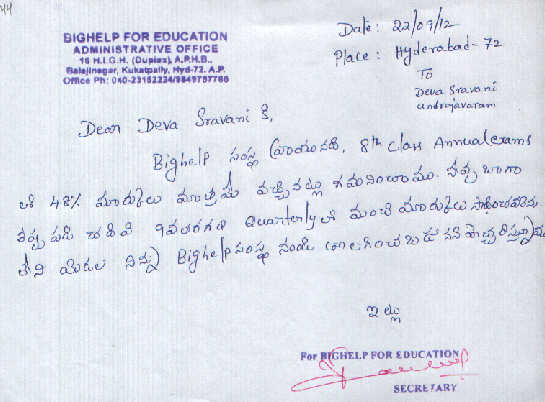 44
BIGHELP FOR EDUCATION
ADMINISTRATIVE OFFICE
16 H.I.G.H. (Duplex), A.P.H.B.,
Balajinagar, Kukatpally, Hyd-72. A.P.
Office Ph: 040-23152234/9849757766
Date: 22/09/12
Place: Hyderabad-72
To
Deva Sravani
Dear Deva Sravani కి,
Bighelp సంస్థ 8th class Annual exams
లో 48% మార్కులు మాత్రమే వచ్చినట్లు గమనించాము. నువ్వు బాగా
చదివి 9వతరగతి Quarterly లో మంచి మార్కులు
నిన్ను Bighelp సంస్థ నుండి
ఇట్లు
For BIGHELP FOR EDUCATION
SECRETARY